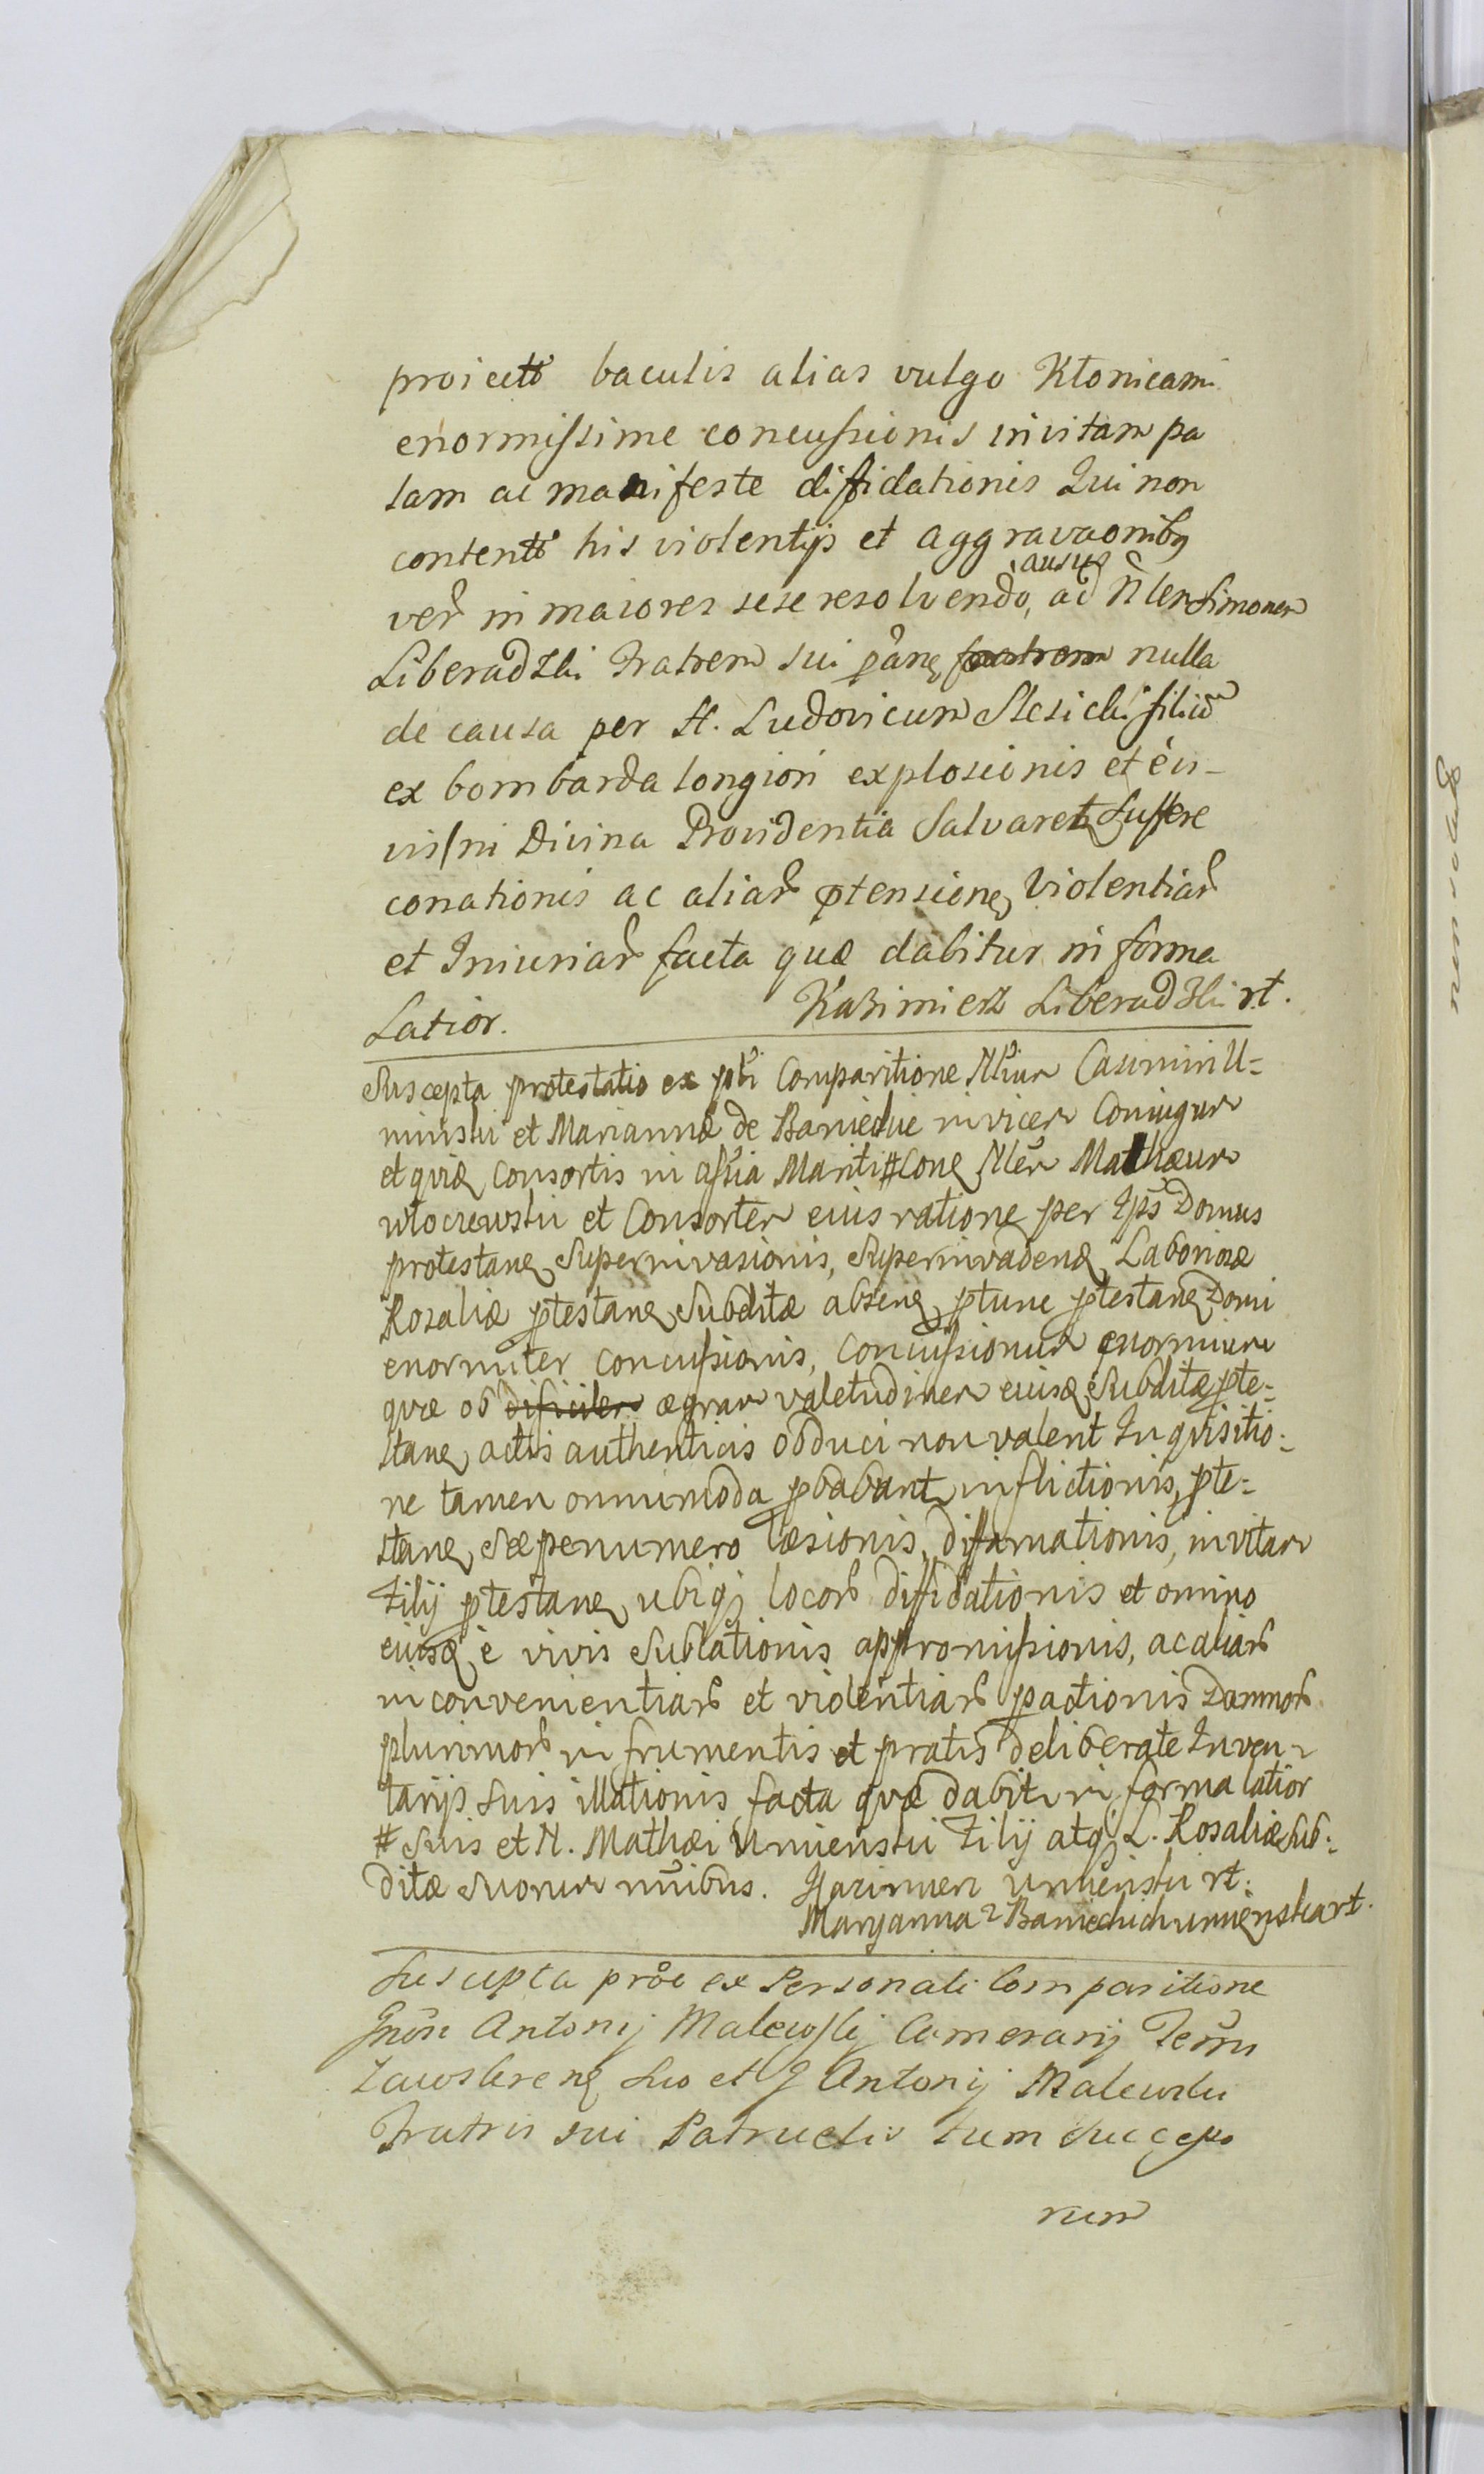 proiectō baculis alias vulgo Kłonicami
enormissime concussionis in vitam pa
lam ac manifeste diffidationis Qui non
contentō his violentijs et aggravaonibꝫ
verũ in maiores sese resolvendo, ausus
ad Nlem Simonem
Liberadzki Fratrem sui pñane fratrem nulla
de causa per N. Ludovicum filiũ
ex bombarda longiori explosionis et evi-
vis ni Divina Providentia Salvaret
conationis ac aliarũ ptensione Violentiarũ
et Iniuriarũ facta quæ dabitur in forma
Latior. Kazimierz Liberadzki rt.
Suscepta protestatio ex pñli Comparitione Nlium Casimiri U-
minski et Mariannæ de Baniedue invicem Coniugum
et quidẽ Consortis in assĩa Mariti # Cone Nlem Mathæum
włoczewski et Consortem eius ratione per Ips Domus
protestane Superinvasionis, Superinvadendo Laboriosæ
Rosaliæ ptestane Subditæ absene ptunc ptestane Domi
enormiter concussionis, concussionum enormium
quæ ob dificilem ægram valetudinem eiusd Subditæ pte-
stane actis authenticis obduci non valent Inquisitio-
ne tamen omnimoda pbabunt inflictionis, pte-
stane Sæpenumero læsionis, difamationis, in vitam
Filij ptestane ubiqꝫ locorũ diffidationis et omnino
eiusd è vivis Sublationis appromissionis, ac aliarũ
inconvenientiarũ et violentiarũ pactionis Damnorũ
plurimorũ in frumentis et pratis deliberate Inven-
tarijs suis illationis facta quæ dabit in forma latior
# Suis et N. Mathæi Uminski Filij atqꝫ L. Rosaliæ Sub-
ditæ suorum nnibus. Kazimierz uminski rt.
Maryanna z uminska rt.
Suscepta proe ex Personali Comparitione
Gnõsi Antonij Malewskij Camerarij Terrũ
Zawskrene suo et G Antonij Malewski
Fratris sui Patruelis tum succesſo
rum